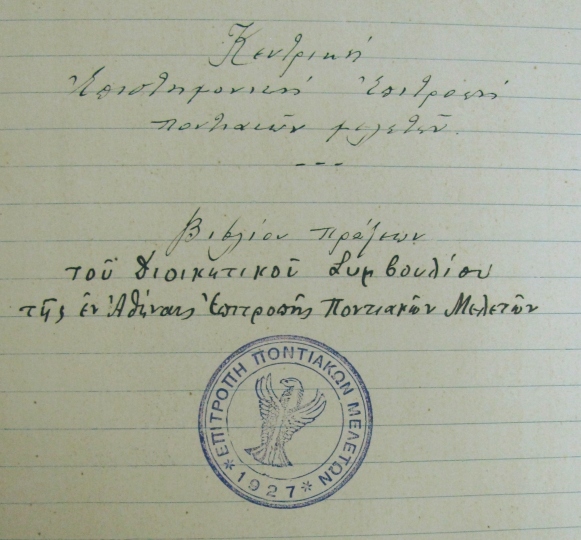 Κεντρική
Ἐπιστημονική Ἐπιτροπή
ποντιακῶν μελετῶν.
---
Βιβλίον πράξεων
τοῦ Διοικητικοῦ Συμβουλίου
τῆς ἐν Ἀθήναις Ἐπιτροπῆς Ποντιακῶν Μελετῶν
ΕΠΙΤΡΟΠΗ ΠΟΝΤΙΑΚΩΝ ΜΕΛΕΤΩΝ
* 1927 *